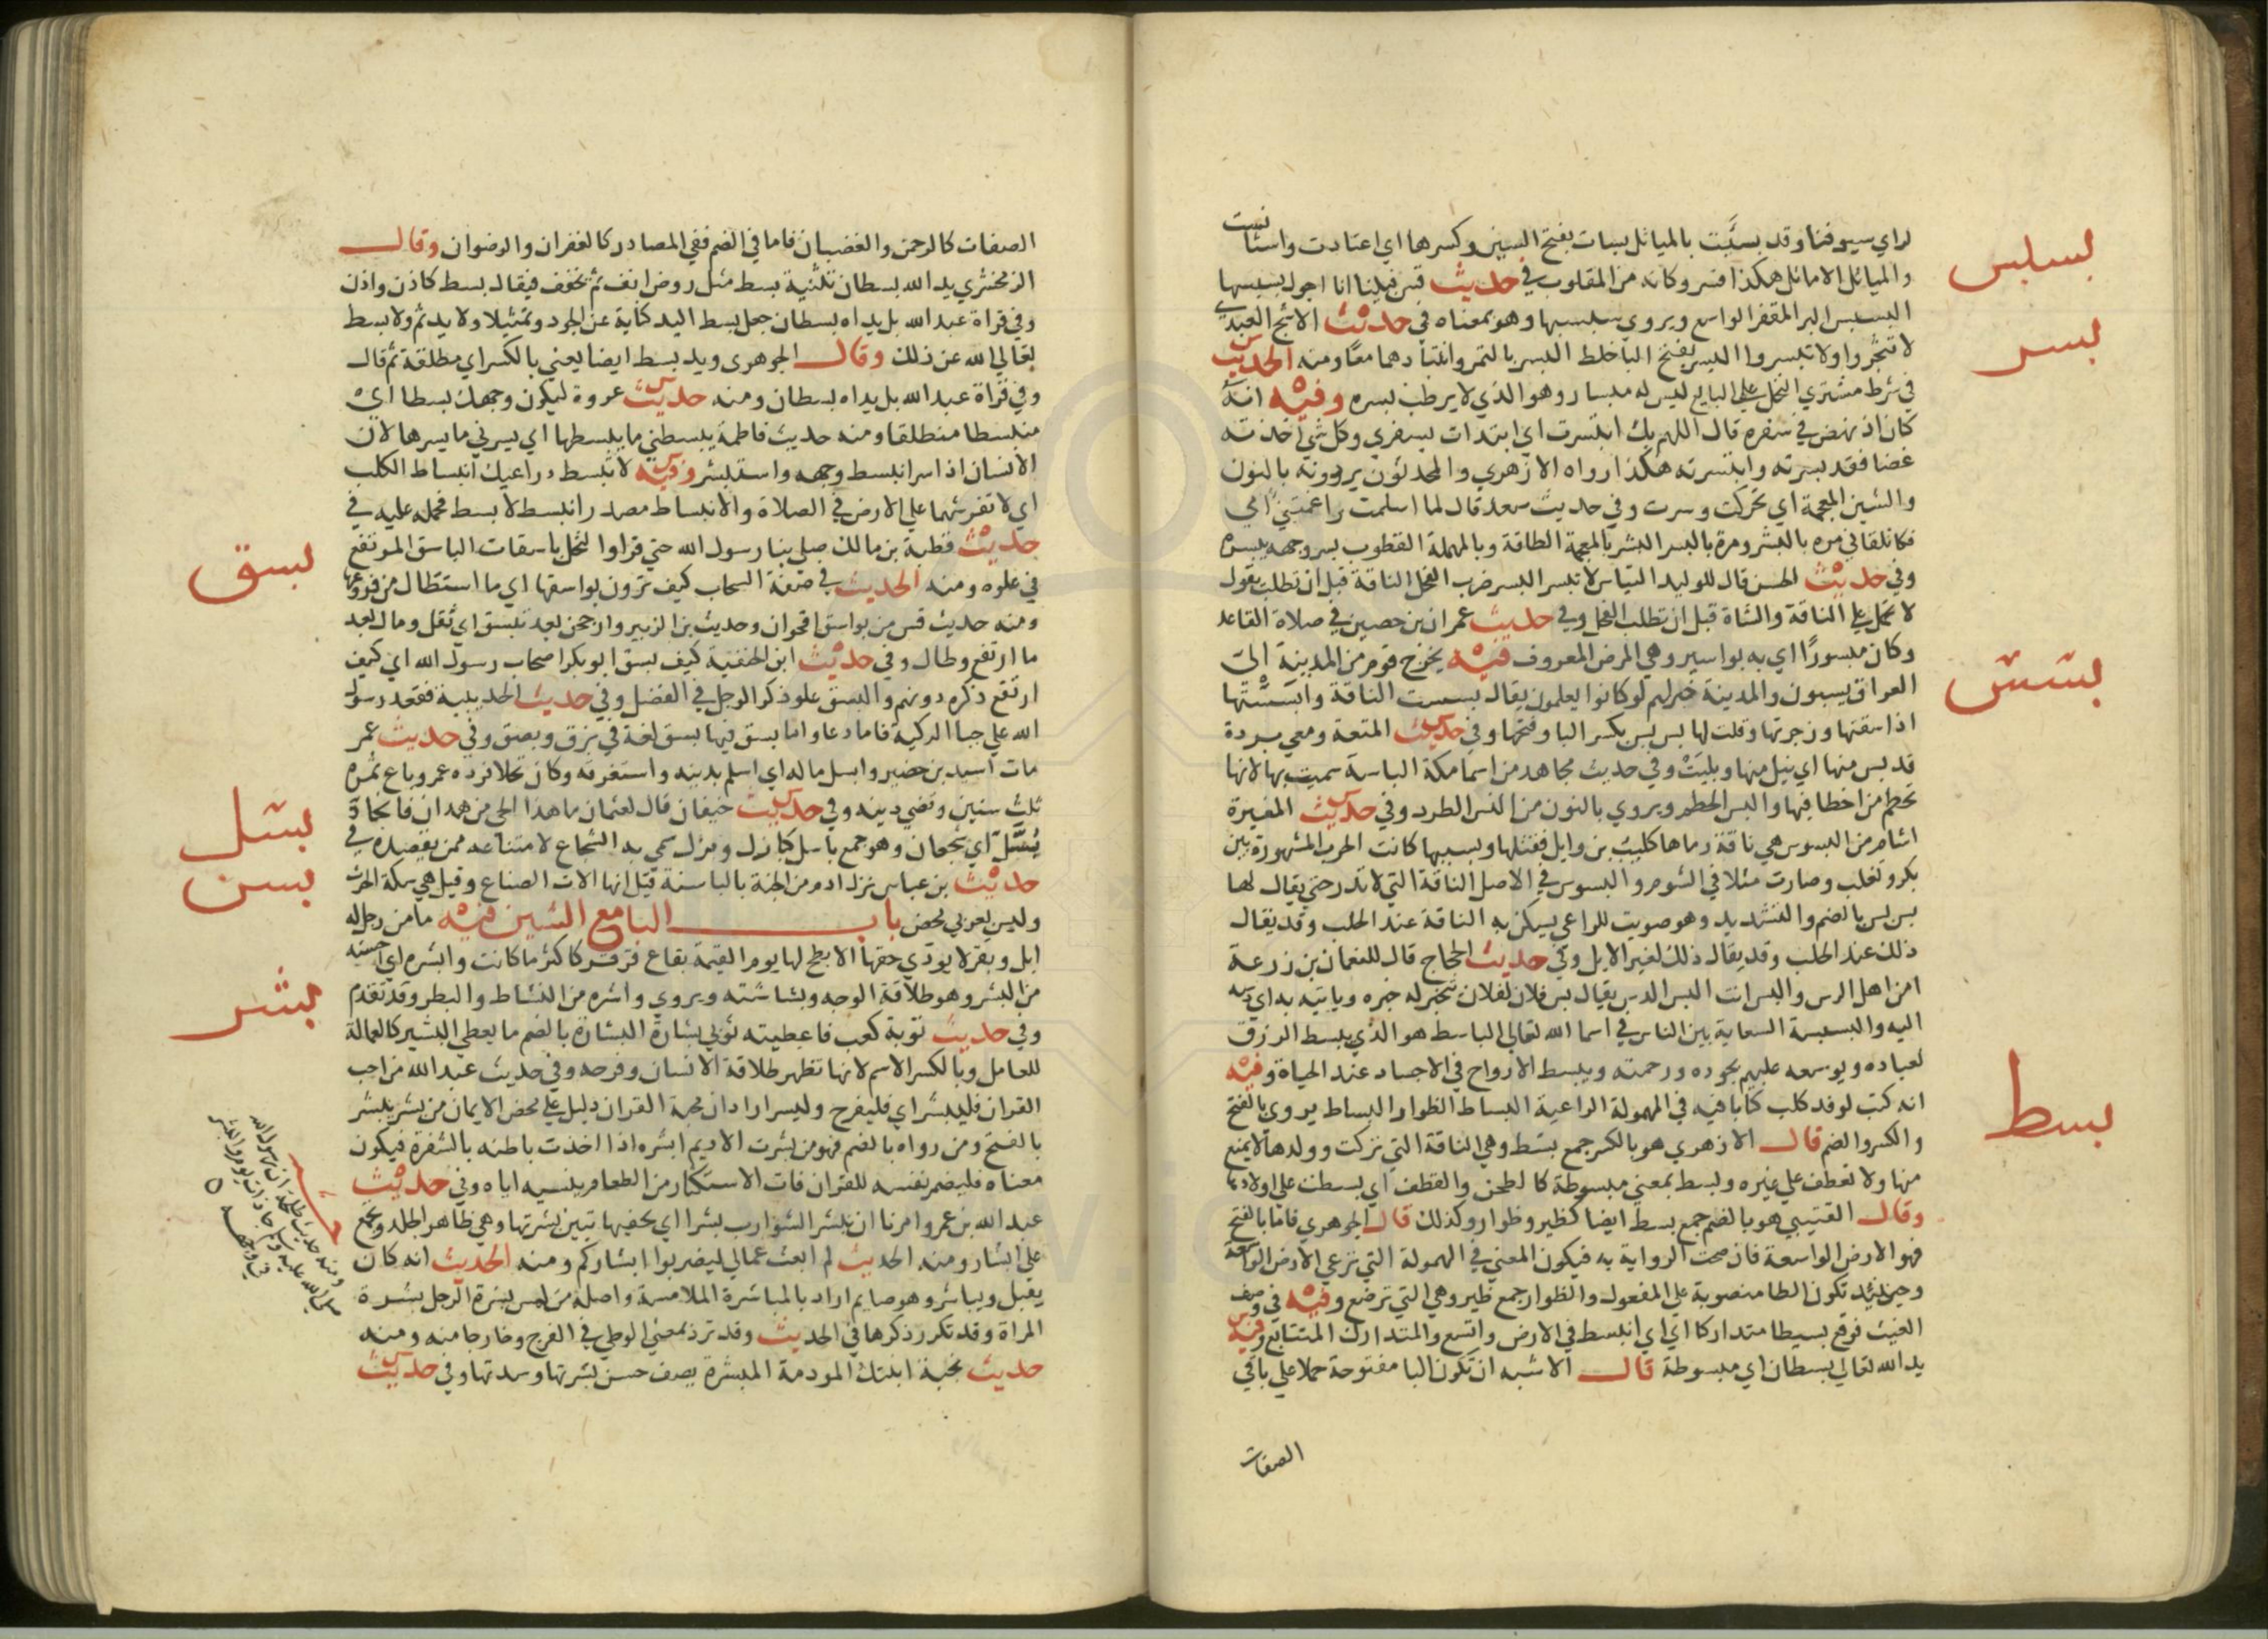 لراي سيوفنا وقد بسئت بالمياثل بسات بفتح السين وكسرها اي اعتادت واستانست
والمياثل الاماثل هكذا فسر وكانه من المقلوب في حديث قس فبينا انا اجول بسبسها
البسبس البر المقفر الواسع ويروي سبسبها وهو بمعناه في حديث الاشج العبدي
لا تثجروا ولا تبسروا البسر بفتح البا خلط البسر بالتمر وانتباذهما معا ومنه الحديث
في شرط مشتري النخل علي البايع ليس له مبسار وهو الذي لا يرطب بسره وفيه انه
كان اذ نهض في سفره قال اللهم بك ابتسرت اي ابتدات بسفري وكل شي اخذته
غضا فقد بسرته وابتسرته هكذا رواه الازهري والمحدثون يروونه بالنون
والشين المعجمة اي تحركت وسرت وفي حديث سعد قال لما اسلمت راغمتني امي
فكانت تلقاني مره بالبشر ومرة بالبسر البشر بالمعجمة الطلاقة وبالمهملة القطوب بسر وجهه يبسره
وفي حديث الحسن قال للوليد التياس لا تبسر البسر ضرب الفحل الناقة قبل ان تطلب يقول
لا تحمل علي الناقة والشاة قبل ان تطلب الفحل وفي حديث عمران بن حصين في صلاة القاعد
وكان مبسورا اي به بواسير وهي المرض المعروف فيه يخرج قوم من المدينة الي
العراق يبسون والمدينة خير لهم لو كانوا يعلمون يقال بسست الناقة وابسستها
اذا سقتها وزجرتها وقلت لها بس بس بكسر البا وفتحها وفي حديث المتعة ومعي بردة
قد بس منها اي نيل منها وبليت وفي حديث مجاهد من اسما مكة الباسة سميت بها لانها
تحطم من اخطا فيها والبس الحطم ويروي بالنون من النس الطرد وفي حديث المغيرة
اشام من البسوس هي ناقة رماها كليب بن وايل فقتلها وبسببها كانت الحرب المشهورة بين
بكر وتغلب وصارت مثلا في الشوم والبسوس في الاصل الناقة التي لا تدر حتي يقال لها
بس بس بالضم والتشديد وهو صويت للراعي يسكن به الناقة عند الحلب وقد يقال
ذلك عند الحلب وقد يقال ذلك لغير الابل وفي حديث الحجاج قال للنعمان بن زرعة
امن اهل الرس والبس انت البس الدس يقال بس فلان لفلان تتخبر له خبره وياتيه به اي دسه
اليه والبسبسة السعاية بين الناس في اسما الله تعالي الباسط هو الذي يبسط الرزق
لعباده ويوسعه عليهم بجوده ورحمته ويبسط الارواح في الاجساد عند الحياة وفيه
انه كتب لوفد كلب كتابا فيه في الهمولة الراعية البساط الظوار البساط يروي بالفتح
والكسر والضم قال الازهري هو بالكسر جمع بسط وهي الناقة التي تركت وولدها لا يمنع
منها ولا تعطف علي غيره وبسط بمعني مبسوطة كالطحن والقطف اي بسطت علي اولادها
وقال القتيبي هو بالضم جمع بسط ايضا كظير وظوار وكذلك قال الجوهري فاما بالفتح
فهو الارض الواسعة فان صحت الرواية به فيكون المعني في الهمولة التي ترعي الارض الواسعة
وحينئذ تكون الطا منصوبة علي المفعول والظوار جمع ظير وهي التي ترضع وفيه في وصف
الغيث فوقع بسيطا متداركا اي انبسط في الارض واتسع والمتدارك المتتابع وفيه
يد الله تعالي بسطان اي مبسوطة قال الاشبه ان تكون البا مفتوحة حملا علي باقي
الصفات
بسبس
بسر
بسس
بسط
الصفات كالرحمن والغضبان فاما في الضم ففي المصادر كالغفران والرضوان وقال
الزمخشري يد الله بسطان تثنية بسط مثل روض انف ثم تخفف فيقال بسط كاذن واذن
وفي قراة عبد الله بل يداه بسطان جعل بسط اليد كناية عن الجود وتمثيلا ولا يد ثم ولا بسط
تعالي الله عن ذلك وقال الجوهري ويد بسط ايضا يعني بالكسر اي مطلقة ثم قال
وفي قراة عبد الله بل يداه بسطان ومنه حديث عروة ليكون وجهك بسطا اي
منبسطا منطلقا ومنه حديث فاطمة يبسطني ما يبسطها اي يسرني ما يسرها لان
الانسان اذا سر انبسط وجهه واستبشر وفيه لا تبسط ذراعيك انبساط الكلب
اي لا تفرشهما علي الارض في الصلاة والانبساط مصدر انبسط لا بسط فحمله عليه في
حديث قطبة بن مالك صلي بنا رسول الله حتي قراوا لنخل باسقات الباسق المرتفع
في علوه ومنه الحديث في صفة السحاب كيف ترون بواسقها اي ما استطال من فروعها
ومنه حديث قس من بواسق اقحوان وحديث بن الزبير وارجحن بعد تبسق اي ثقل ومال بعد
ما ارتفع وطال وفي حديث ابن الحنفية كيف بسق ابو بكر اصحاب رسول الله اي كيف
ارتفع ذكره دونهم والبسق علو ذكر الرجل في الفضل وفي حديث الحديبية فقعد رسول
الله علي جبا الركية فاما دعا واما بسق فيها بسق لغة في بزق وبصق وفي حديث عمر
مات اسيد بن حضير وابسل ماله اي اسلم بدينه واستغرقه وكان نخلا فرده عمر وباع ثمره
ثلث سنين وقضي دينه وفي حديث خيفان قال لعثمان ما هذا الحي من همدان فانجاد
بسل اي شجعان وهو جمع باسل كبازل وبزل سمي به الشجاع لامتناعه ممن يقصده في
حديث بن عباس نزل ادم من الجنة بالباسنة قيل انها الات الصناع وقيل هي سكة الحرث
وليس بعربي محض باب البا مع الشين فيه ما من رجل له
ابل وبقر لا يودي حقها الا بطح لها يوم القيمة بقاع قرقر كاكثر ما كانت وابشره اي احسنه
من البشر وهو طلاقة الوجه وبشاشته ويروي واشره من النشاط والبطر وقد تقدم
وفي حديث توبة كعب فاعطيته ثوبي بشارة البشارة بالضم ما يعطي البشير كالعمالة
للعامل وبالكسر الاسم لانها تظهر طلاقة الانسان وفرحه وفي حديث عبد الله من احب
القران فليبشر اي فليفرح وليسر اراد ان محبة القران دليل علي محض الايمان من بشر يبشر
بالفتح ومن رواه بالضم فهو من بشرت الاديم ابشره اذا اخذت باطنه بالشفرة فيكون
معناه فليضمر نفسه للقران فان الاستكثار من الطعام ينسيه اياه وفي حديث
عبد الله بن عمرو امرنا ان نبشر الشوارب بشرا اي نحفيها تبين بشرتها وهي ظاهر الجلد ويجمع
علي ابشار ومنه الحديث لم ابعث عمالي ليضربوا ابشاركم ومنه الحديث انه كان
يقبل ويباشر وهو صايم اراد بالمباشرة الملامسة واصله من لمس بشرة الرجل بشرة
المراة وقد تكرر ذكرها في الحديث وقد ترد بمعني الوطي في الفرج وخارجا منه ومنه
حديث نجبة ابنتك المودمة المبشرة يصف حسن بشرتها وسدتها وفي حديث
بسق
بسل
بسن
بشر